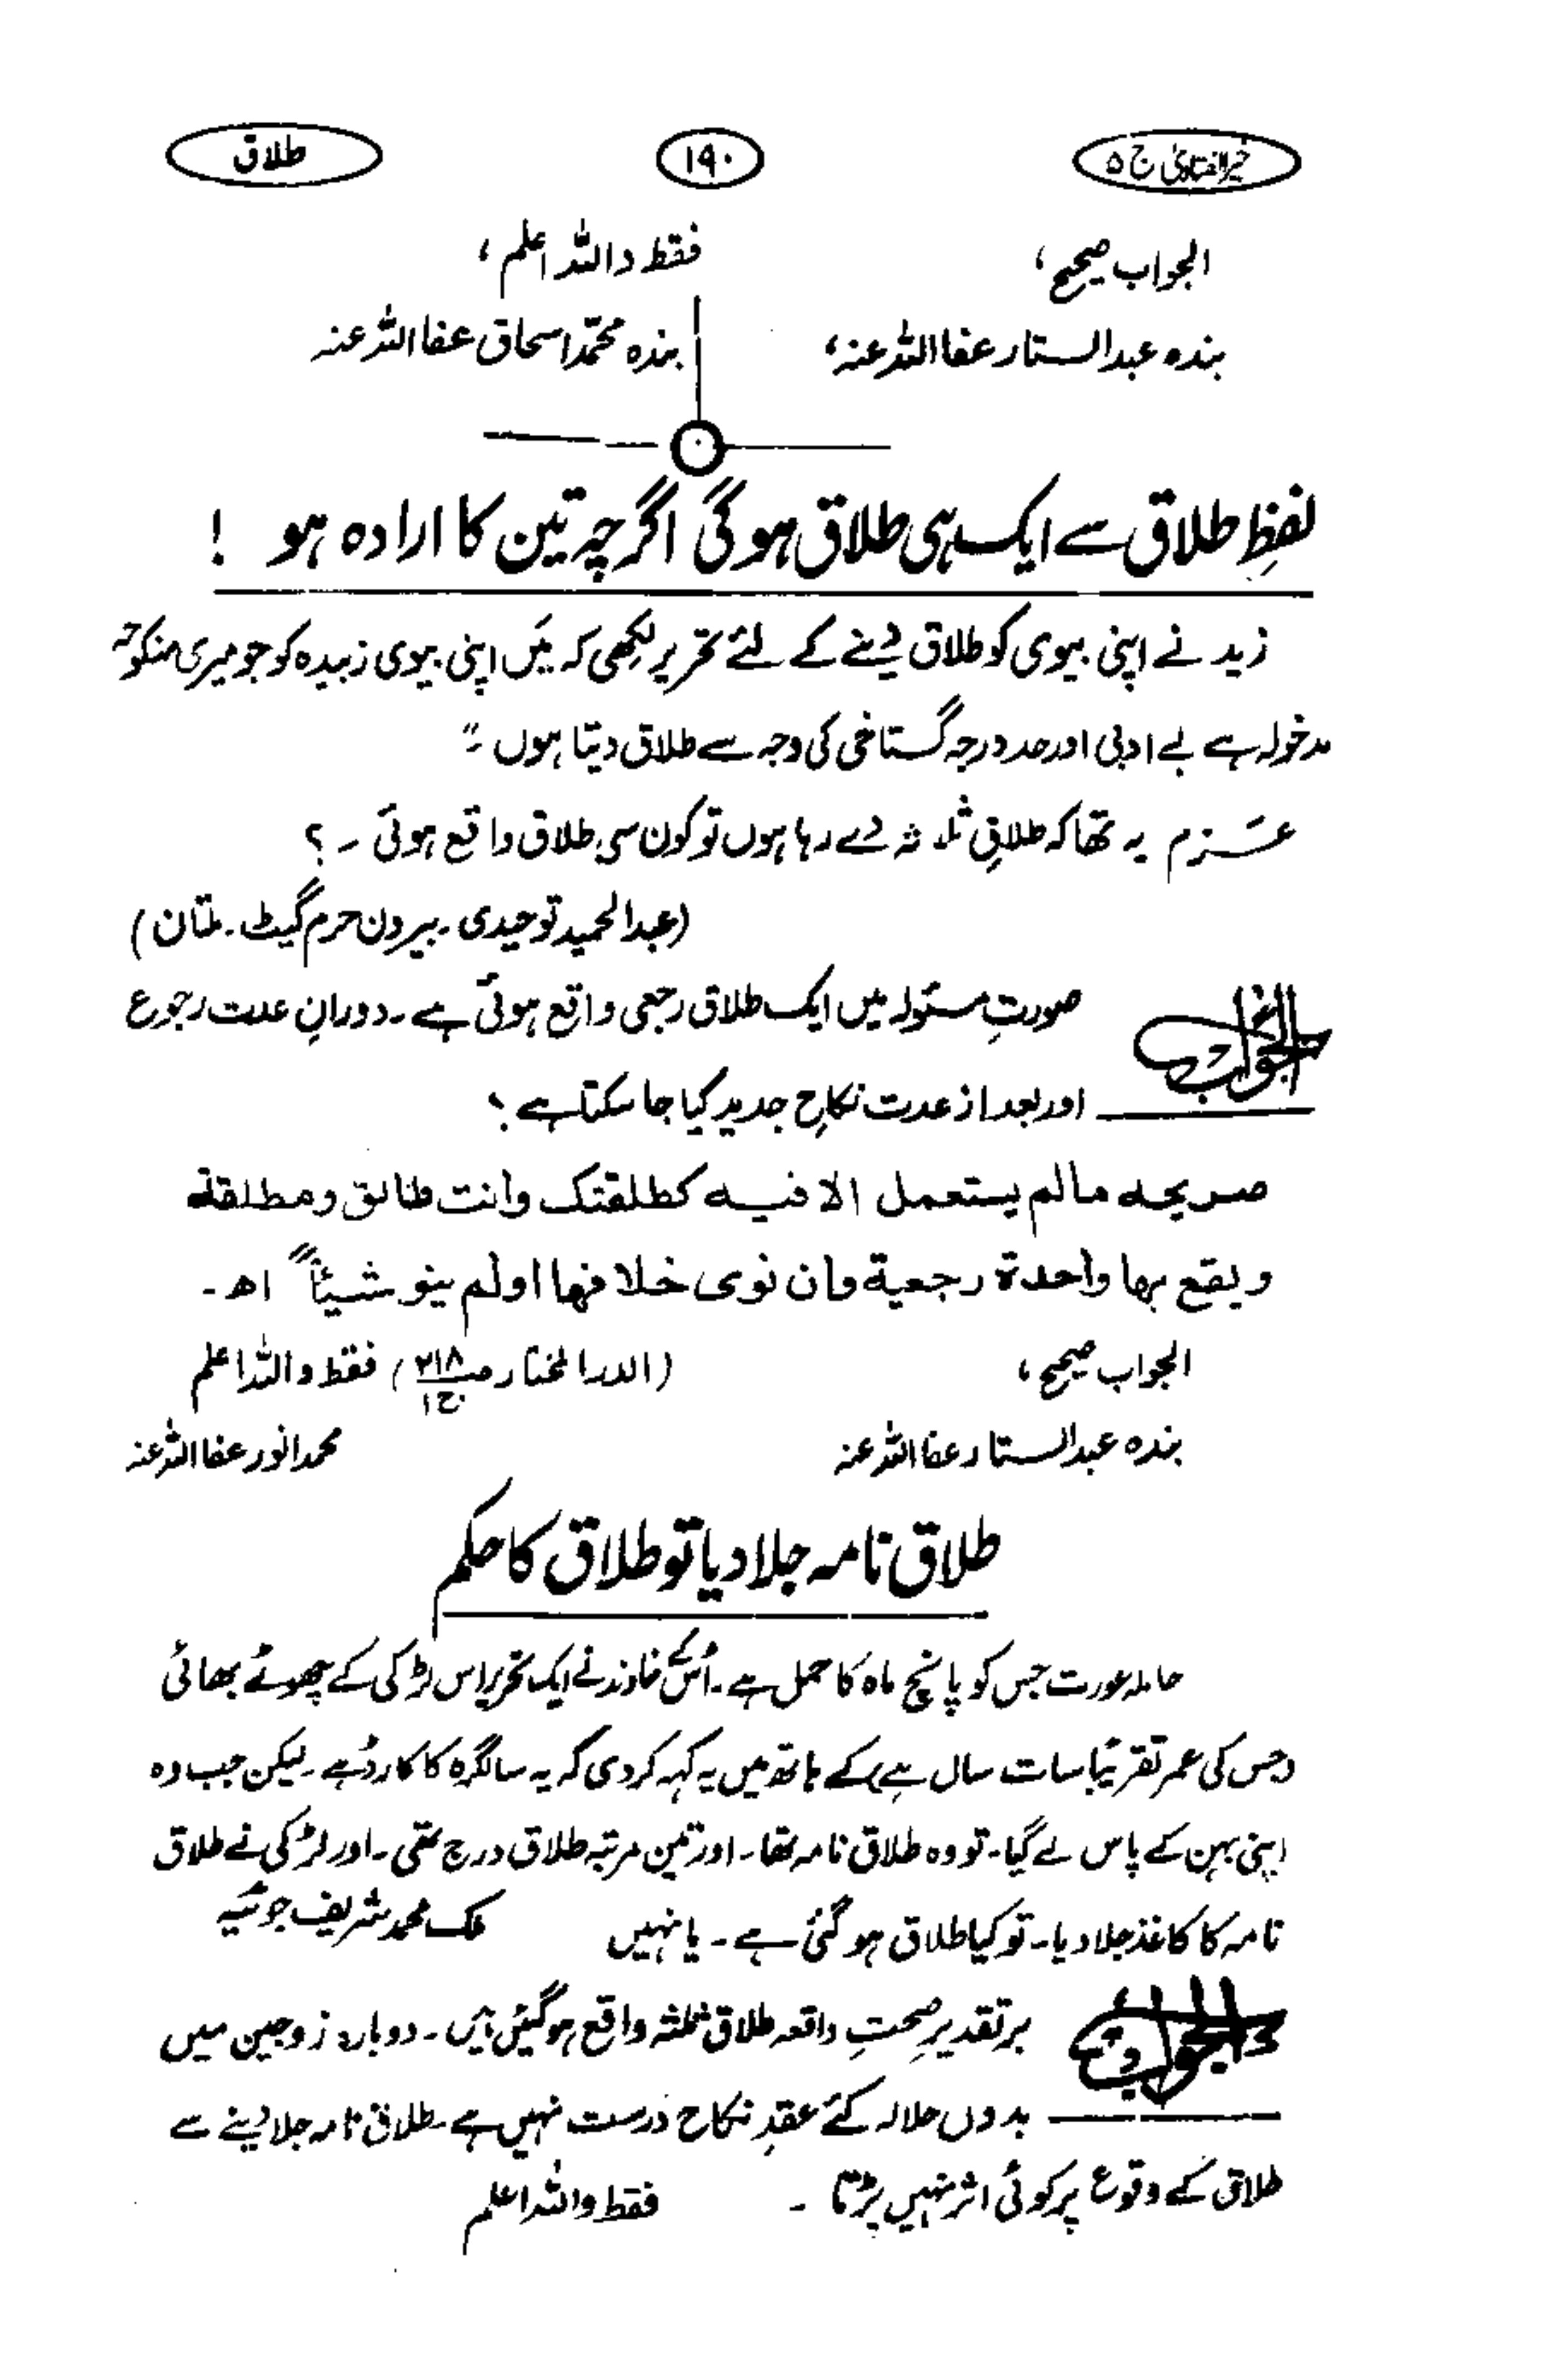 خیر الفتاویٰ ج ۵
۱۹۰
طلاق
الجواب صحیح، فقط واللہ اعلم،
بندہ عبدالستار عفا اللہ عنہ، بندہ محمّد اسحاق عفا اللہ عنہ
لفظِ طلاق سے ایک ہی طلاق ہوگی اگرچہ تین کا ارادہ ہو !
زید نے اپنی بیوی کو طلاق دینے کے لئے تحریر لکھی کہ میں اپنی بیوی زبیدہ کو جو میری منکوحہ
مدخولہ ہے بے ادبی اور حد درجہ گستاخی کی وجہ سے طلاق دیتا ہوں ۔"
عزم یہ تھا کہ طلاقِ ثلاثہ دے رہا ہوں تو کون سی طلاق واقع ہوئی ۔ ؟
(عبدالحمید توحیدی ۔ بیرون حرم گیٹ ۔ ملتان)
الجواب صورتِ مسئولہ میں ایک طلاق رجعی واقع ہوئی ہے ۔ دورانِ عدت رجوع
اور بعد از عدت نکاحِ جدید کیا جا سکتا ہے ؛
صریحہ مالم یستعمل الا فیہ کطلقتک وانت طالق ومطلقۃ
ویقع بہا واحدة رجعیة وان نوی خلافہا اولم ینو شیئاً" اھ ۔
الجواب صحیح، (الدرالمختار ص۲۱۸ ج۱) فقط واللہ اعلم
بندہ عبدالستار عفا اللہ عنہ محمد انور عفا اللہ عنہ
طلاق نامہ جلا دیا تو طلاق کا حکم
حاملہ عورت جس کو پانچ ماہ کا حمل ہے ۔ اُس کے خاوند نے ایک تحریر اس لڑکی کے چھوٹے بھائی
(جس کی عمر تقریباً سات سال ہے) کے ہاتھ میں یہ کہہ کر دی کہ یہ سالگرہ کا کارڈ ہے ۔ لیکن جب وہ
اپنی بہن کے پاس لے گیا ۔ تو وہ طلاق نامہ تھا ۔ اور تین مرتبہ طلاق درج تھی ۔ اور لڑکی نے طلاق
نامہ کا کاغذ جلا دیا ۔ تو کیا طلاق ہو گئی ہے ۔ یا نہیں ملک محمد شریف جوئیہ
الجواب برتقدیرِ صحتِ واقعہ طلاق ثلثہ واقع ہوگئیں ہیں ۔ دوبارہ زوجین میں
بدوں حلالہ کئے عقدِ نکاح درست نہیں ہے ۔ طلاق نامہ جلا دینے سے
طلاق کے وقوع پر کوئی اثر نہیں پڑتا ۔ فقط واللہ اعلم